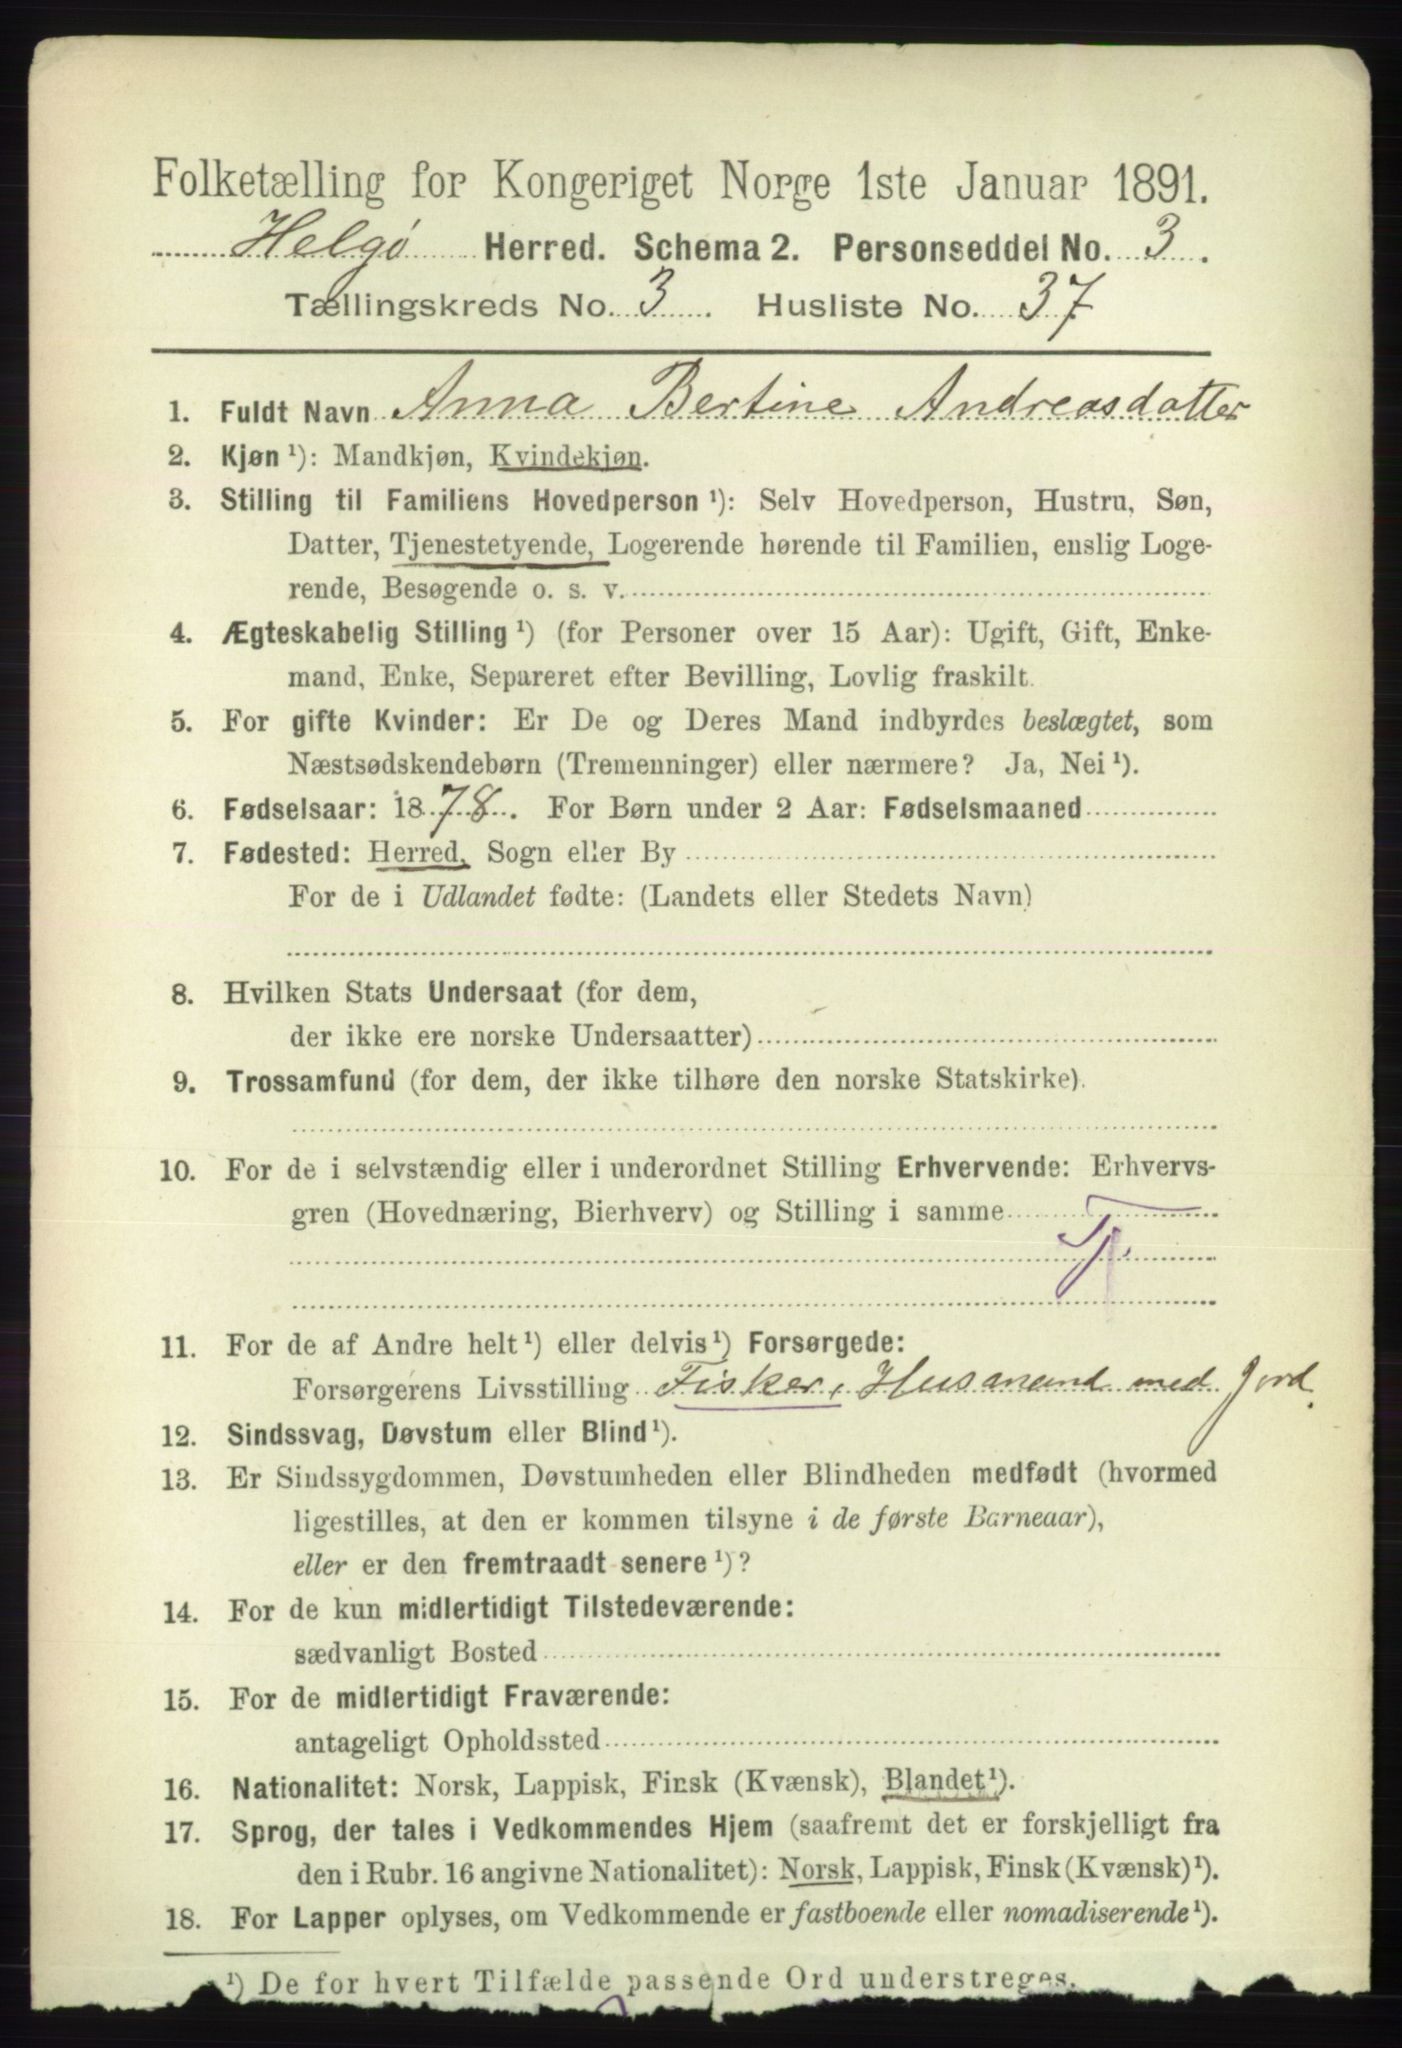 Folketælling for Kongeriget Norge 1ste Januar 1891.
Helgø Herred. Schema 2. Personseddel No. 3.
Tællingskreds No. 3. Husliste No. 37
1. Fuldt Navn Anna Bertine Andreasdatter
2. Kjøn ¹): Mandkjøn, Kvindekjøn.
3. Stilling til Familiens Hovedperson ¹): Selv Hovedperson, Hustru, Søn,
Datter, Tjenestetyende, Logerende hørende til Familien, enslig Loge-
rende, Besøgende o. s. v.
4. Ægteskabelig Stilling ¹) (for Personer over 15 Aar): Ugift, Gift, Enke-
mand, Enke, Separeret efter Bevilling, Lovlig fraskilt.
5. For gifte Kvinder: Er De og Deres Mand indbyrdes beslægtet, som
Næstsødskendebørn (Tremenninger) eller nærmere? Ja, Nei ¹).
6. Fødselsaar: 1878. For Børn under 2 Aar: Fødselsmaaned
7. Fødested: Herred, Sogn eller By
For de i Udlandet fødte: (Landets eller Stedets Navn)
8. Hvilken Stats Undersaat (for dem,
der ikke ere norske Undersaatter)
9. Trossamfund (for dem, der ikke tilhøre den norske Statskirke).
10. For de i selvstændig eller i underordnet Stilling Erhvervende: Erhvervs-
gren (Hovednæring, Bierhverv) og Stilling i samme
11. For de af Andre helt ¹) eller delvis ¹) Forsørgede:
Forsørgerens Livsstilling Fisker, Husmand med Jord.
12. Sindssvag, Døvstum eller Blind ¹).
13. Er Sindssygdommen, Døvstumheden eller Blindheden medfødt (hvormed
ligestilles, at den er kommen tilsyne i de første Barneaar),
eller er den fremtraadt senere ¹)?
14. For de kun midlertidigt Tilstedeværende:
sædvanligt Bosted
15. For de midlertidigt Fraværende:
antageligt Opholdssted
16. Nationalitet: Norsk, Lappisk, Finsk (Kvænsk), Blandet ¹).
17. Sprog, der tales i Vedkommendes Hjem (saafremt det er forskjelligt fra
den i Rubr. 16 angivne Nationalitet): Norsk, Lappisk, Finsk (Kvænsk) ¹).
18. For Lapper oplyses, om Vedkommende er fastboende eller nomadiserende ¹).
¹) De for hvert Tilfælde passende Ord understreges.